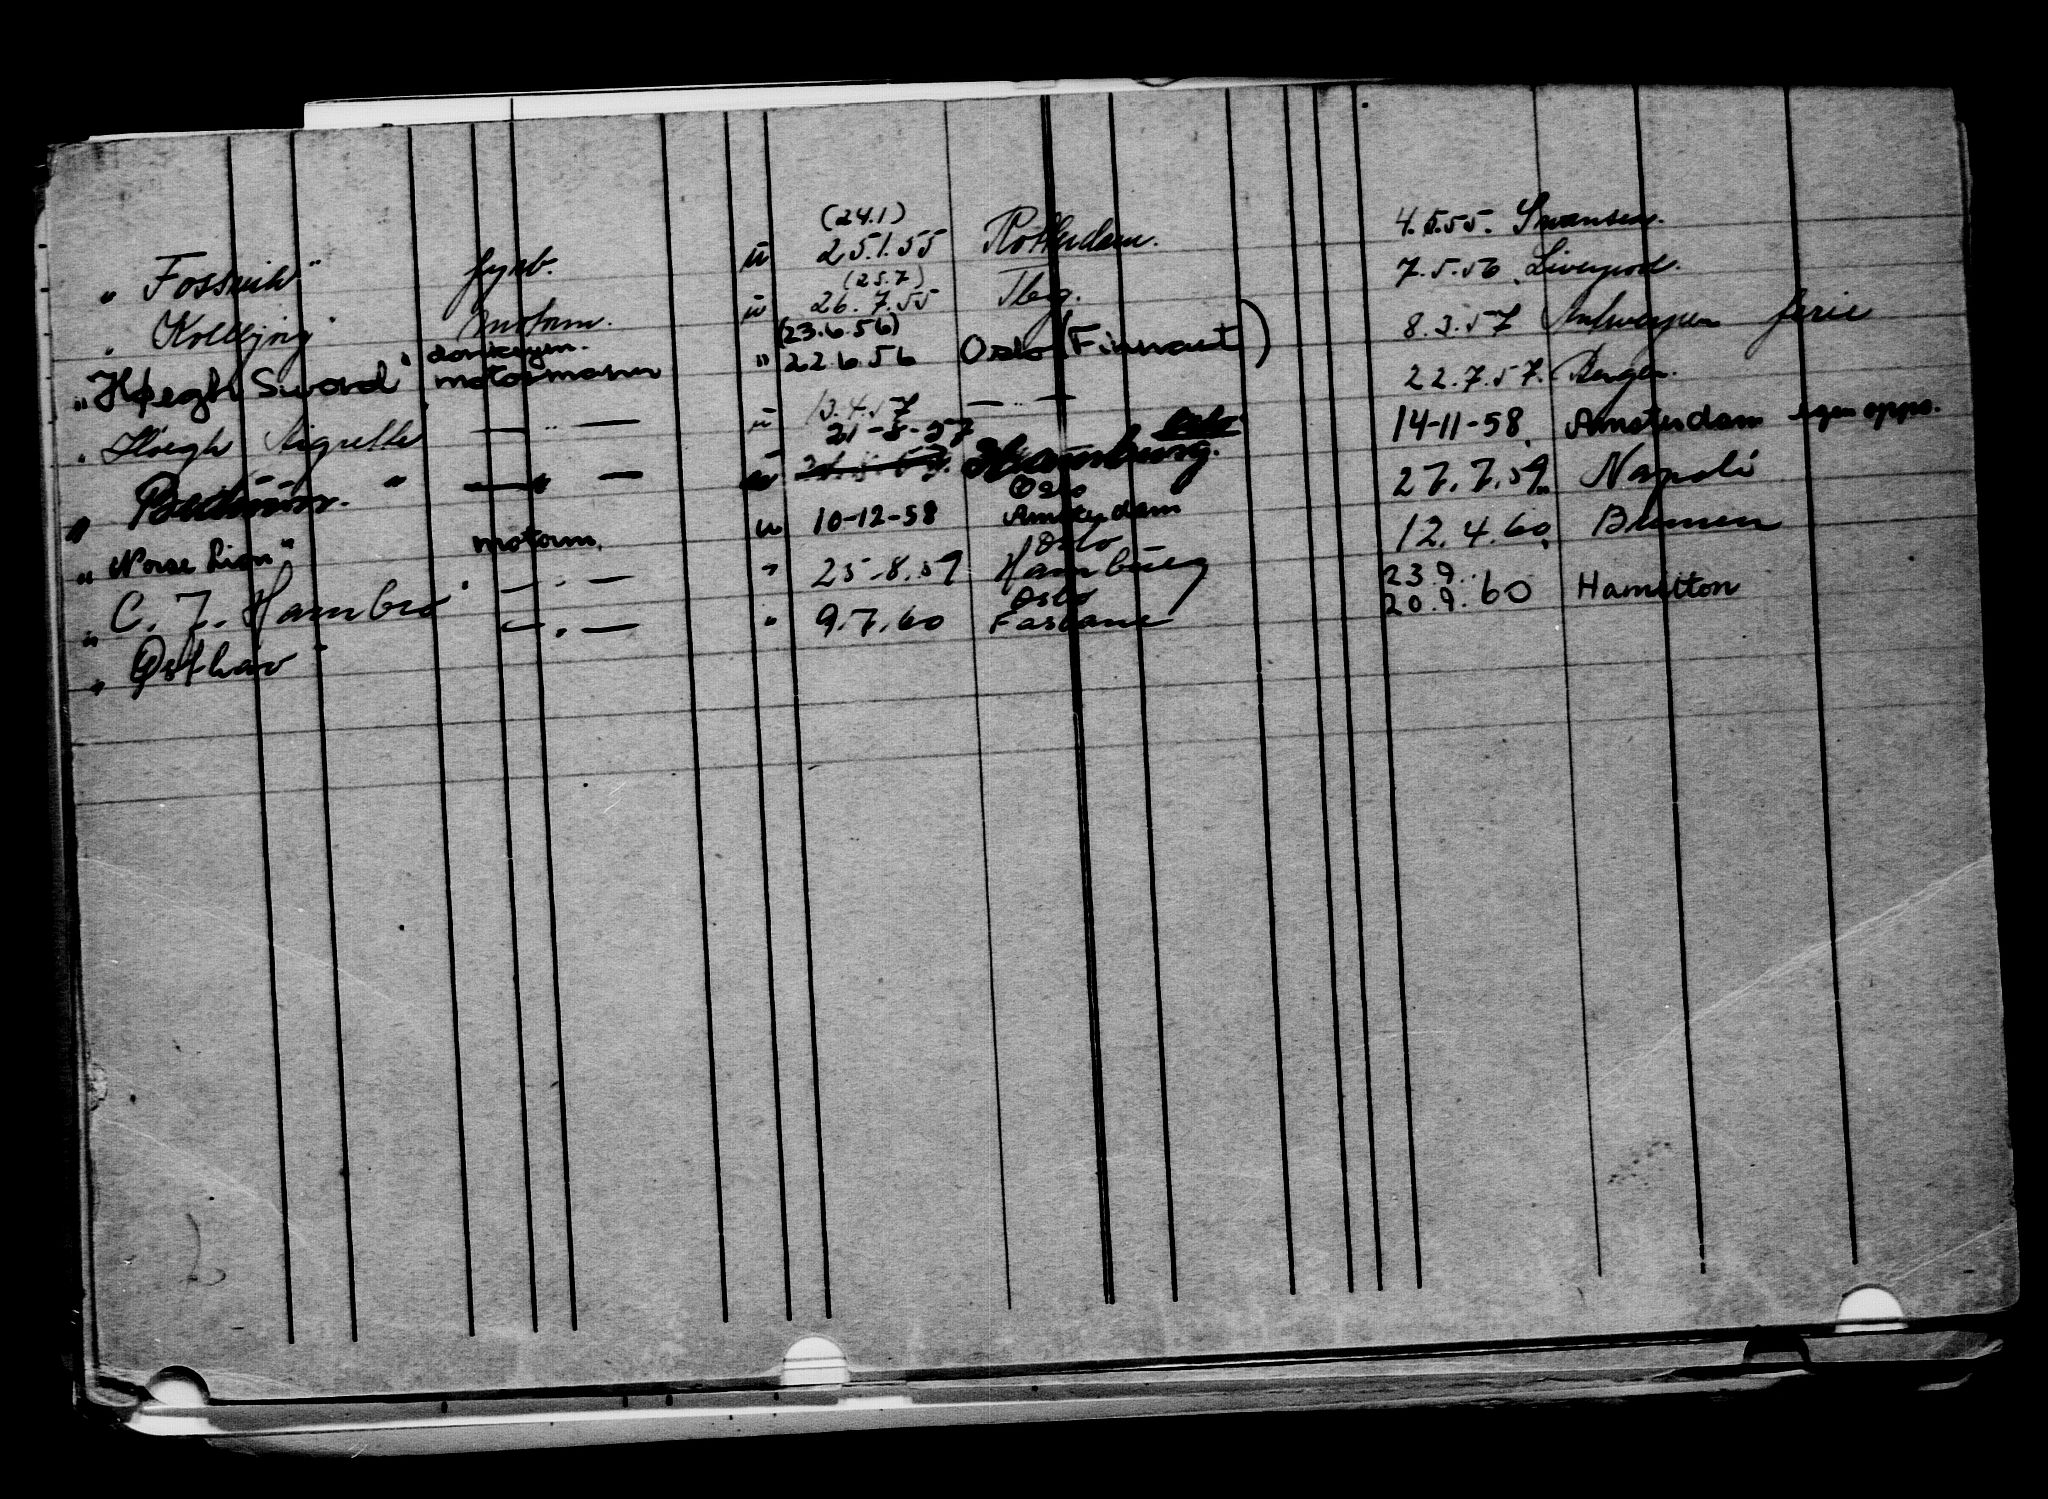 (24.1)
" Fossvik" fyrb. u 25.1.55 Rotterdam. 4.5.55. Swansea.
(25.7)
" Kollbjørg" motorm. u 26.7.55 Tbg. 7.5.56 Liverpool.
donkeym. (23.6.56)
" Høegh Sword" motormann " 22.6.56 Oslo (Finnart) 8.3.57 Antwerpen ferie
" Høegh Aigrette" — " — u 13.4.57 — " — 22.7.57. Bergen.
21-8-57 Oslo
" — " — Hamburg. 14-11-58. Amsterdam egen opps.
Oslo
" Norse Lion" motorm. u 10-12-58 Amsterdam 27.7.59. Napoli
Oslo
" C. J. Hambro" — " — " 25.8.59 Hamburg 12.4.60. Bremen
Oslo 23.9.
" Østhav" — " — " 9.7.60 Faslane 20.9.60 Hamilton